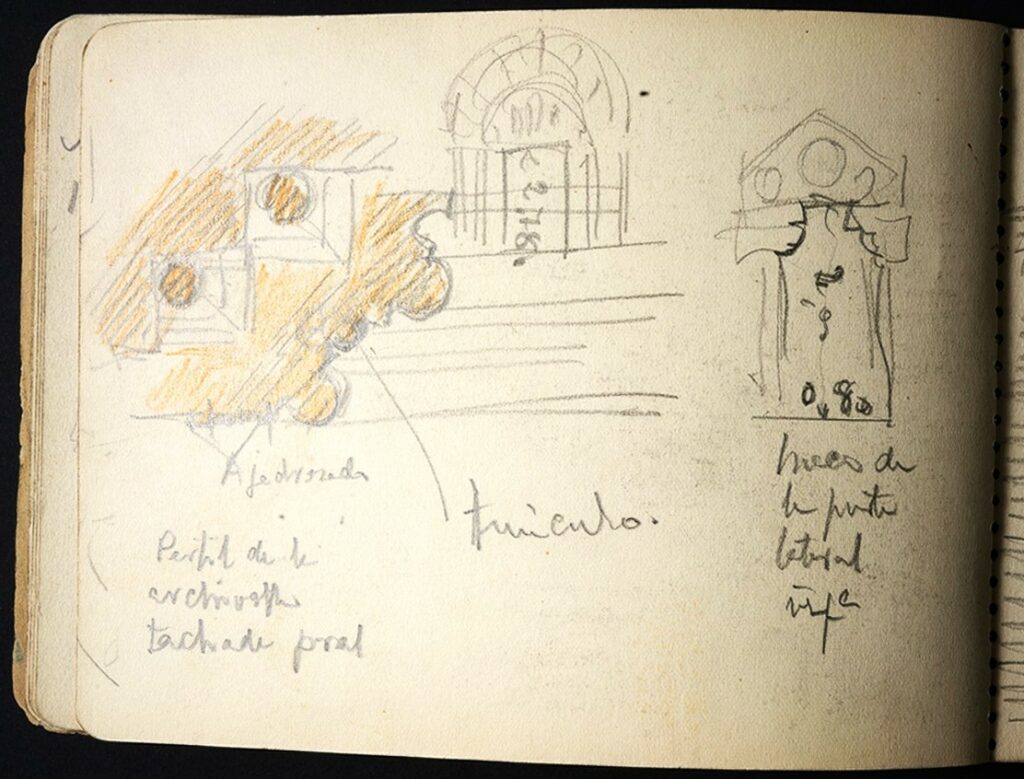 2,78
0,80
Ajedrezado
funiculo.
Perfil de la
archivolta
fachada pral
hueco de
la puerta
lateral
izqª